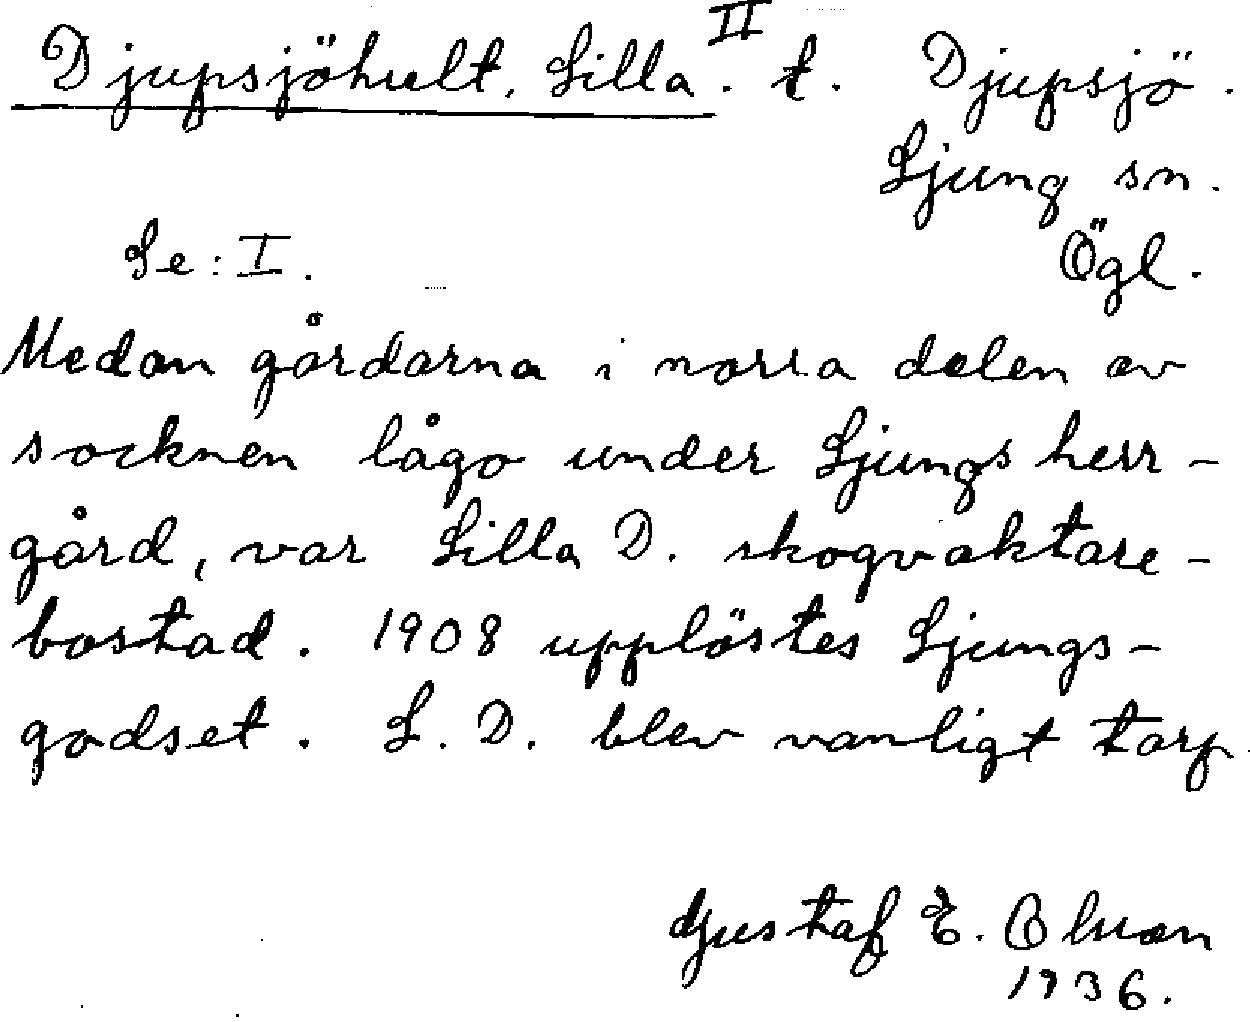 Djupsjöhult, Lilla. II t. Djupsjö.
Ljung sn.
Se: I. Ögl.
Medan gårdarna i norra delen av
socknen lågo under Ljungs herr-
gård, var Lilla D. skogvaktare-
bostad. 1908 upplöstes Ljungs-
godset. L. D. blev vanligt torp.
Gustaf E. Olsson
1936.